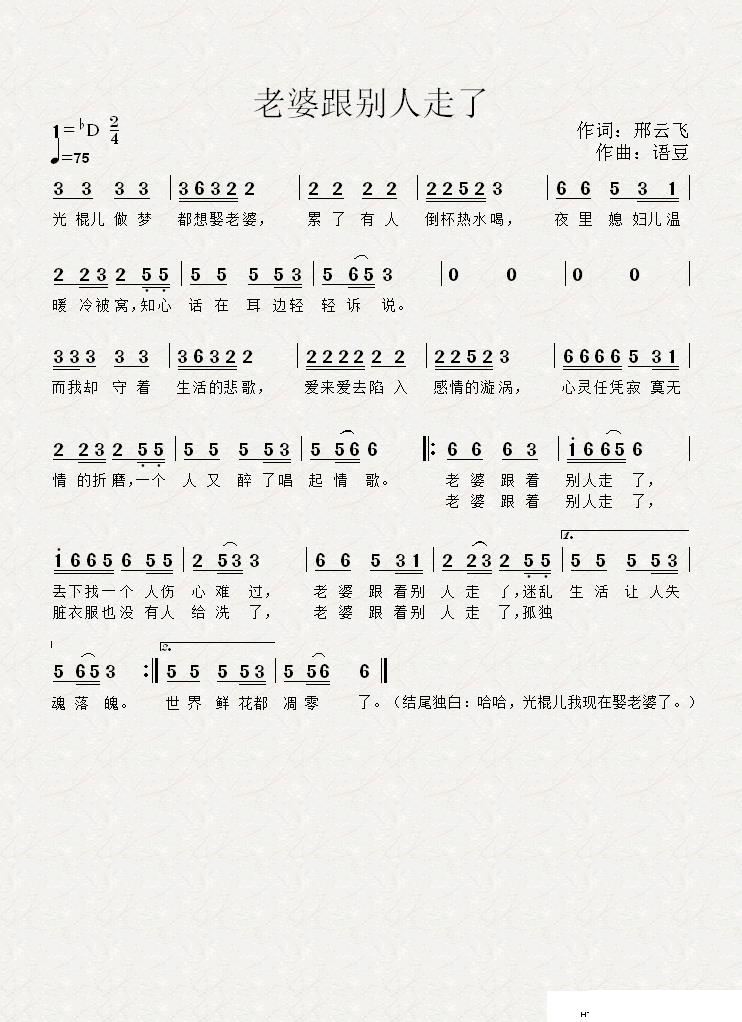 老婆跟别人走了
1=♭D 2/4
作词：邢云飞
♩=75
作曲：语豆
3 3 3 3 | 3 6 3 2 2 2 | 2 2 2 2 | 2 2 5 2 3 | 6 6 5 3 1 |
光 棍儿 做 梦 都想娶老婆， 累 了 有 人 倒杯热水喝， 夜 里 媳 妇儿温
2 2 3 2 5 5 | 5 5 5 5 3 | 5 6 5 3 | 0 0 | 0 0 |
暖 冷被窝，知心 话 在 耳 边轻 轻 诉 说。
3 3 3 3 3 | 3 6 3 2 2 | 2 2 2 2 2 2 | 2 2 5 2 3 | 6 6 6 6 5 3 1 |
而我却 守 着 生活的悲歌， 爱来爱去陷 入 感情的漩涡， 心灵任凭寂 寞无
2 2 3 2 5 5 | 5 5 5 5 3 | 5 5 6 6 ‖: 6 6 6 3 | 1 6 6 5 6 |
情 的折磨，一个 人 又 醉 了唱 起 情 歌。 老 婆 跟 着 别人走 了，
老 婆 跟 着 别人走 了，
1 6 6 5 6 5 5 | 2 5 3 3 | 6 6 5 3 1 | 2 2 3 2 5 5 | 1. 5 5 5 5 3 |
丢下找一个 人伤 心 难 过， 老 婆 跟 着别 人 走 了，迷乱 生 活 让 人失
脏衣服也没 有人 给 洗 了， 老 婆 跟 着别 人 走 了，孤独
5 6 5 3 :‖ 2. 5 5 5 5 3 | 5 5 6 6 ‖
魂 落 魄。 世 界 鲜 花都 凋 零 了。（结尾独白：哈哈，光棍儿我现在娶老婆了。）